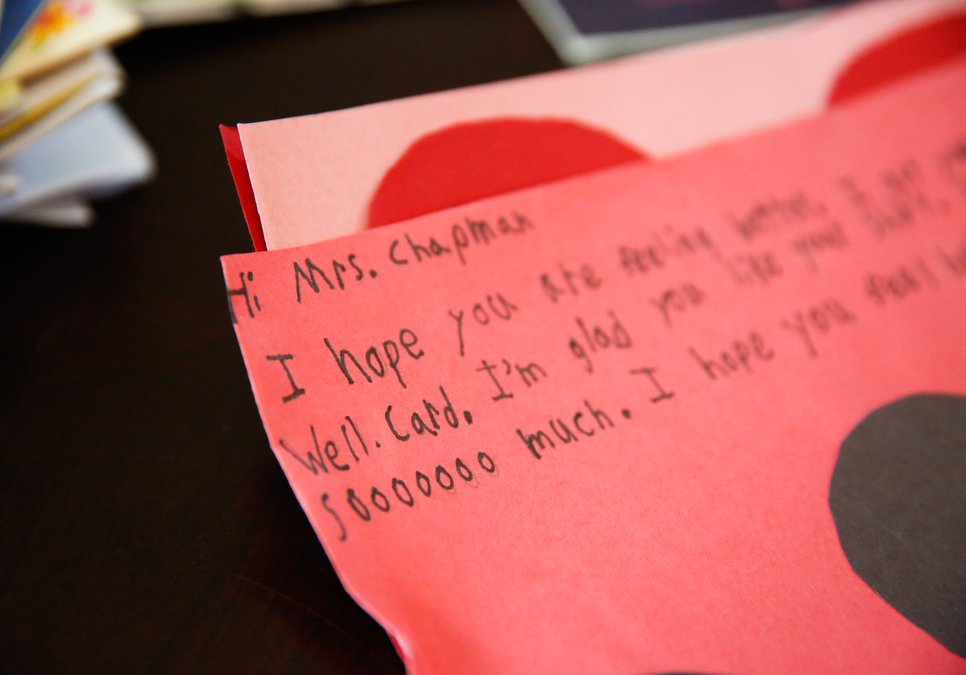 Hi Mrs. Chapman
I hope you are feeling better. I
Well. Card. I'm glad you like your
Sooooooo much. I hope you feel